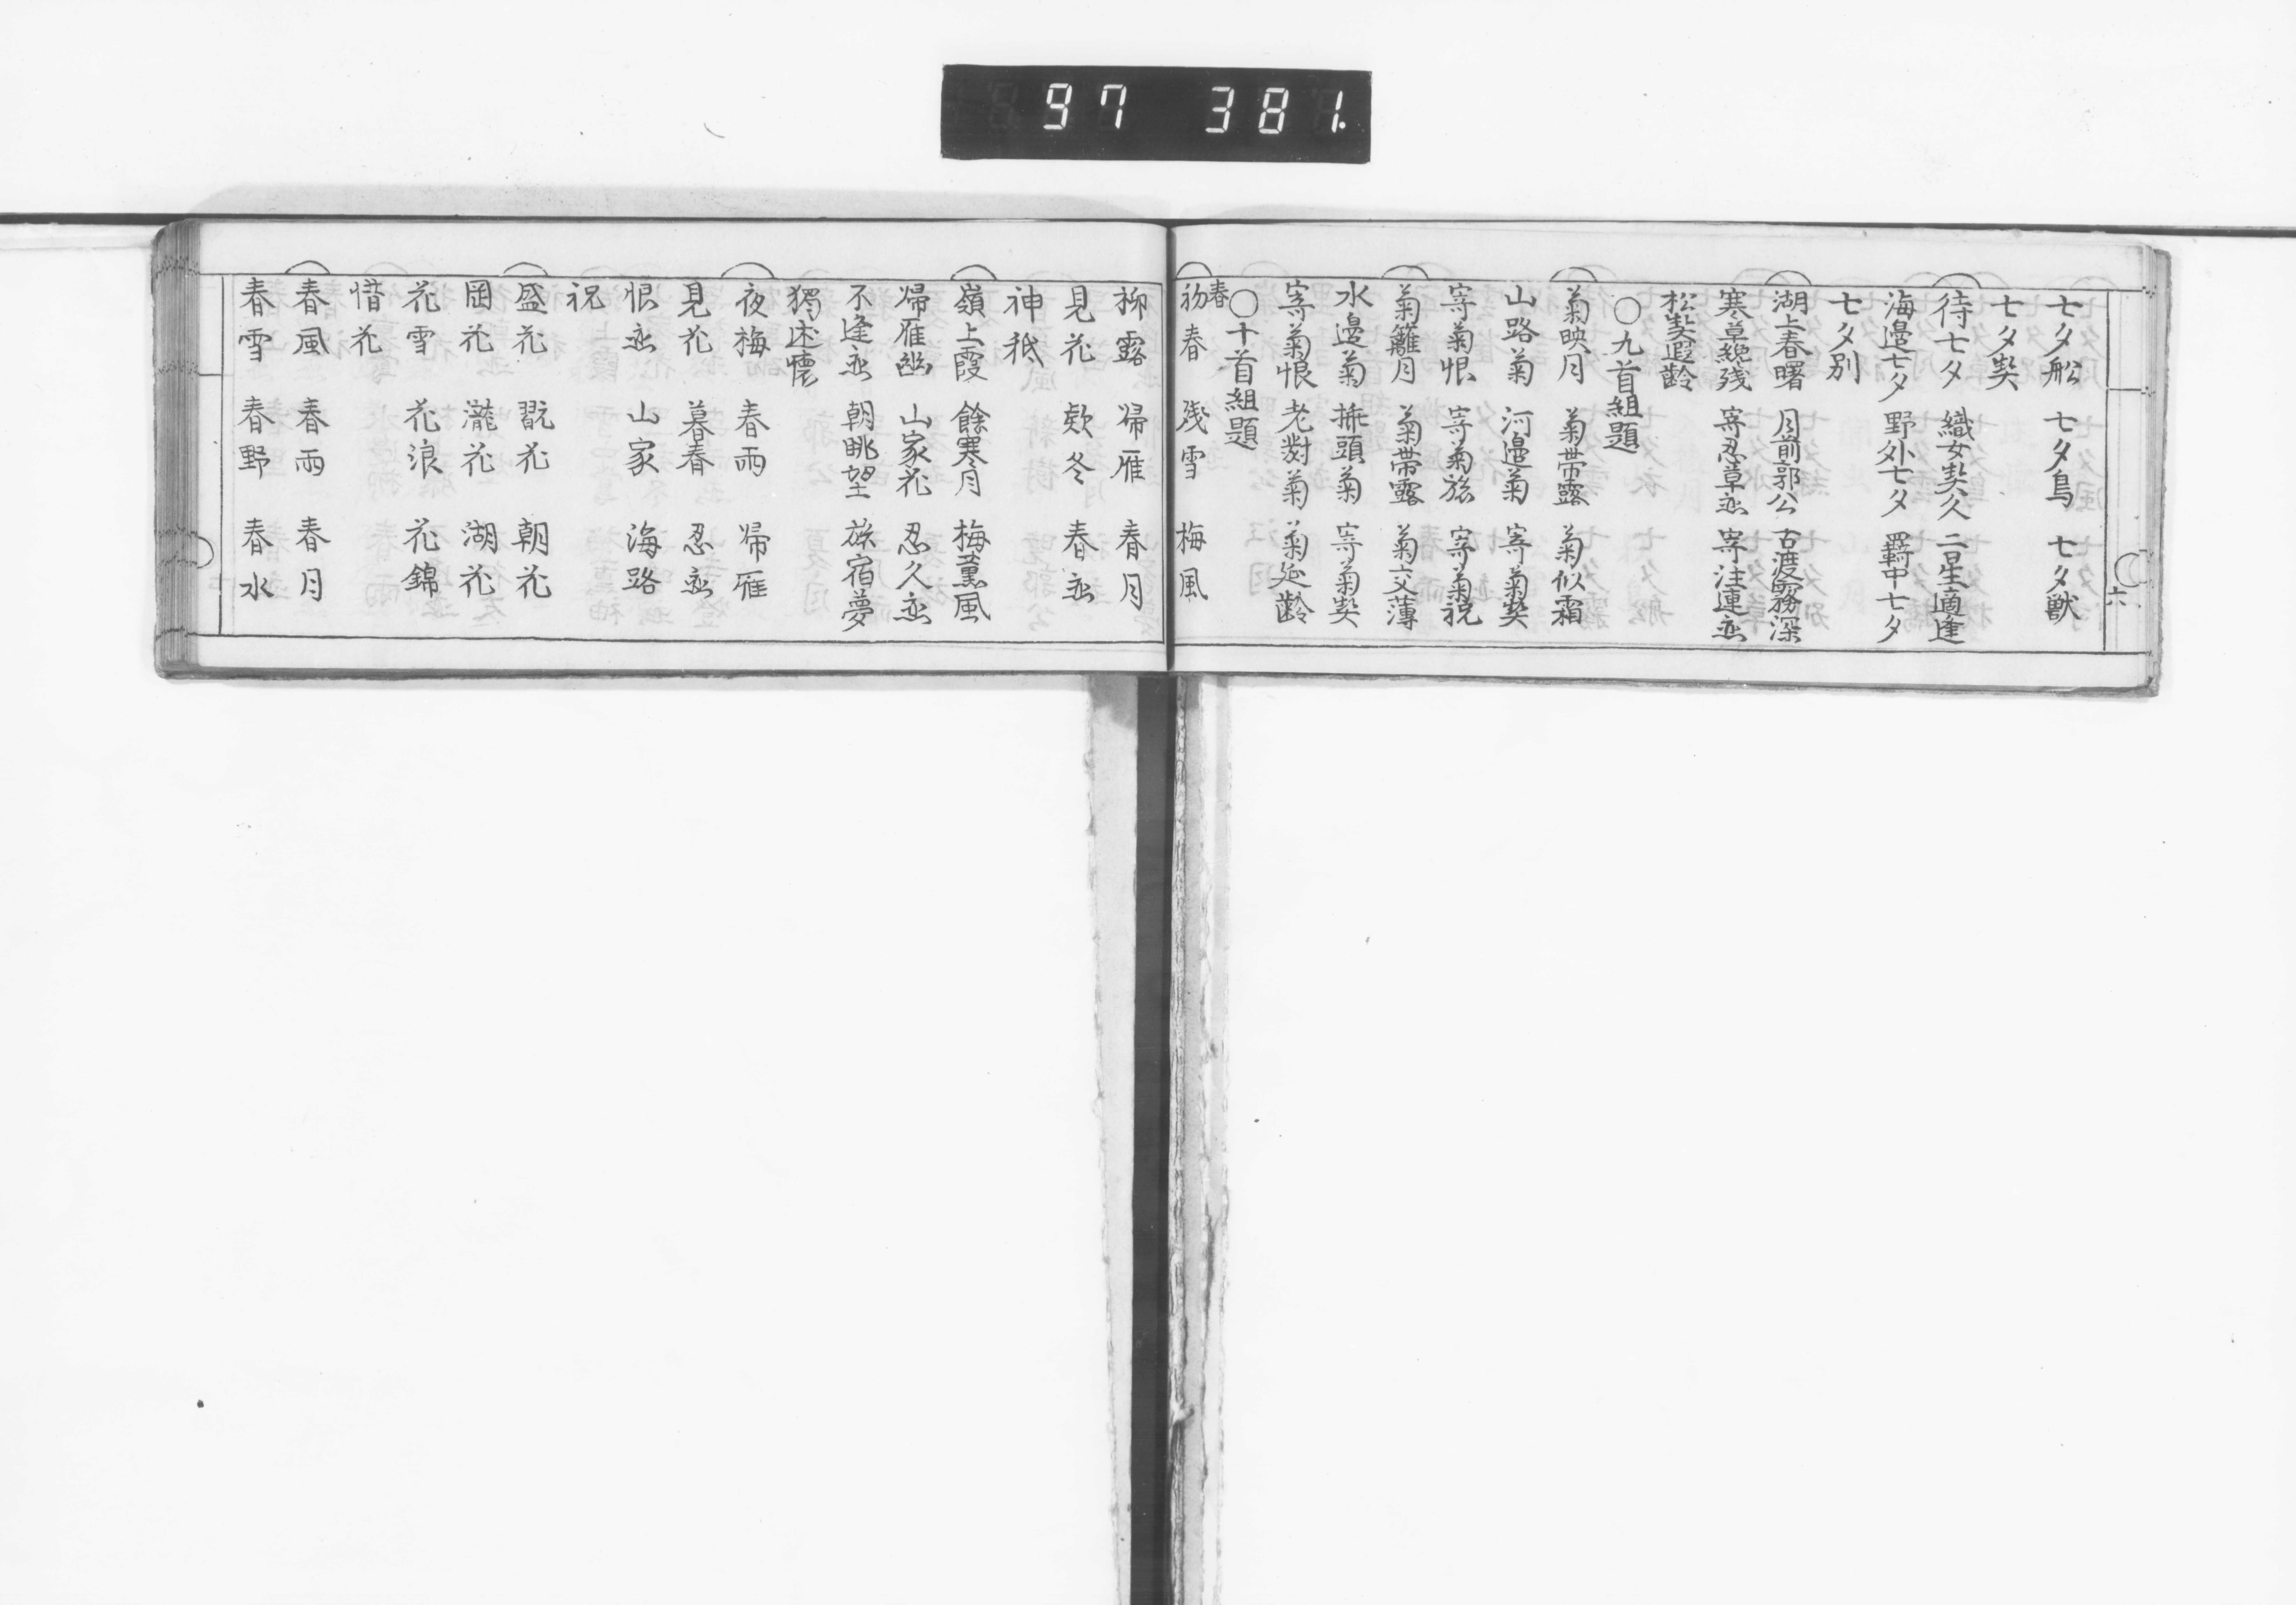 97 381.
七夕舩 七夕鳥 七夕獣
七夕契
待七夕 織女契久 二星適逢
海邊七夕 野外七夕 羇中七夕
七夕別
湖上春曙 月前郭公 古渡霧深
寒草纔残 寄忍草恋 寄注連恋
松契遐齡
〇九首組題
菊映月 菊帯露 菊似霜
山路菊 河邊菊 寄菊契
寄菊恨 寄菊旅 寄菊祝
菊籬月 菊帯露 菊交薄
水邊菊 挿頭菊 寄菊契
寄菊恨 老對菊 菊延齡
〇十首組題
春
初春 残雪 梅風
六
柳露 帰雁 春月
見花 欵冬 春恋
神祇
嶺上霞 餘寒月 梅薫風
帰雁幽 山家花 忍久恋
不逢恋 朝眺望 旅宿夢
獨述懐
夜梅 春雨 帰雁
見花 暮春 忍恋
恨恋 山家 海路
祝
盛花 翫花 朝花
岡花 瀧花 湖花
花雪 花浪 花錦
惜花
春風 春雨 春月
春雪 春野 春水